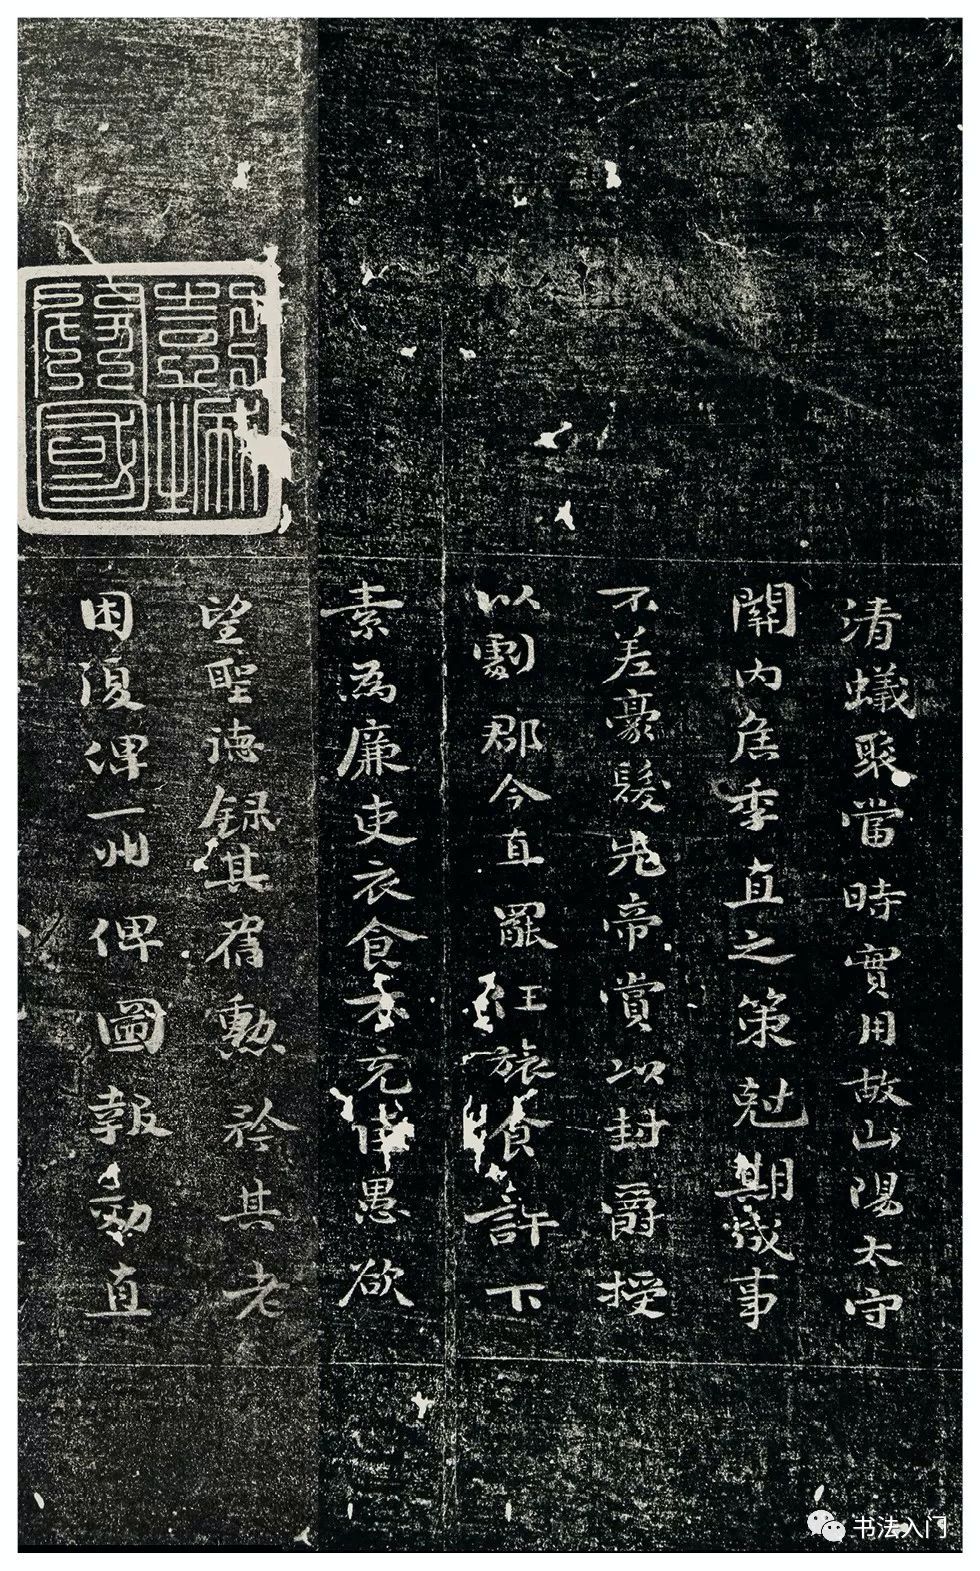 清蟻聚當時實用故山陽太守
關内侯季直之策尅期成事
不差豪髮先帝賞以封爵授
以劇郡今直罷任旅食許下
素為廉吏衣食不充臣愚欲
望聖德録其舊勳矜其老
困復俾一州俾圖報効直
书法入门